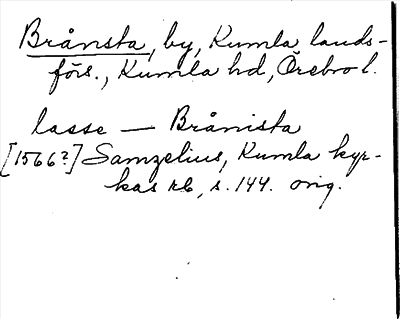 Brånsta, by, Kumla lands-
förs., Kumla hd, Örebro l.
lasse — Brånista
[1566?] Samzelius, Kumla kyr-
kas rb, s. 144. orig.